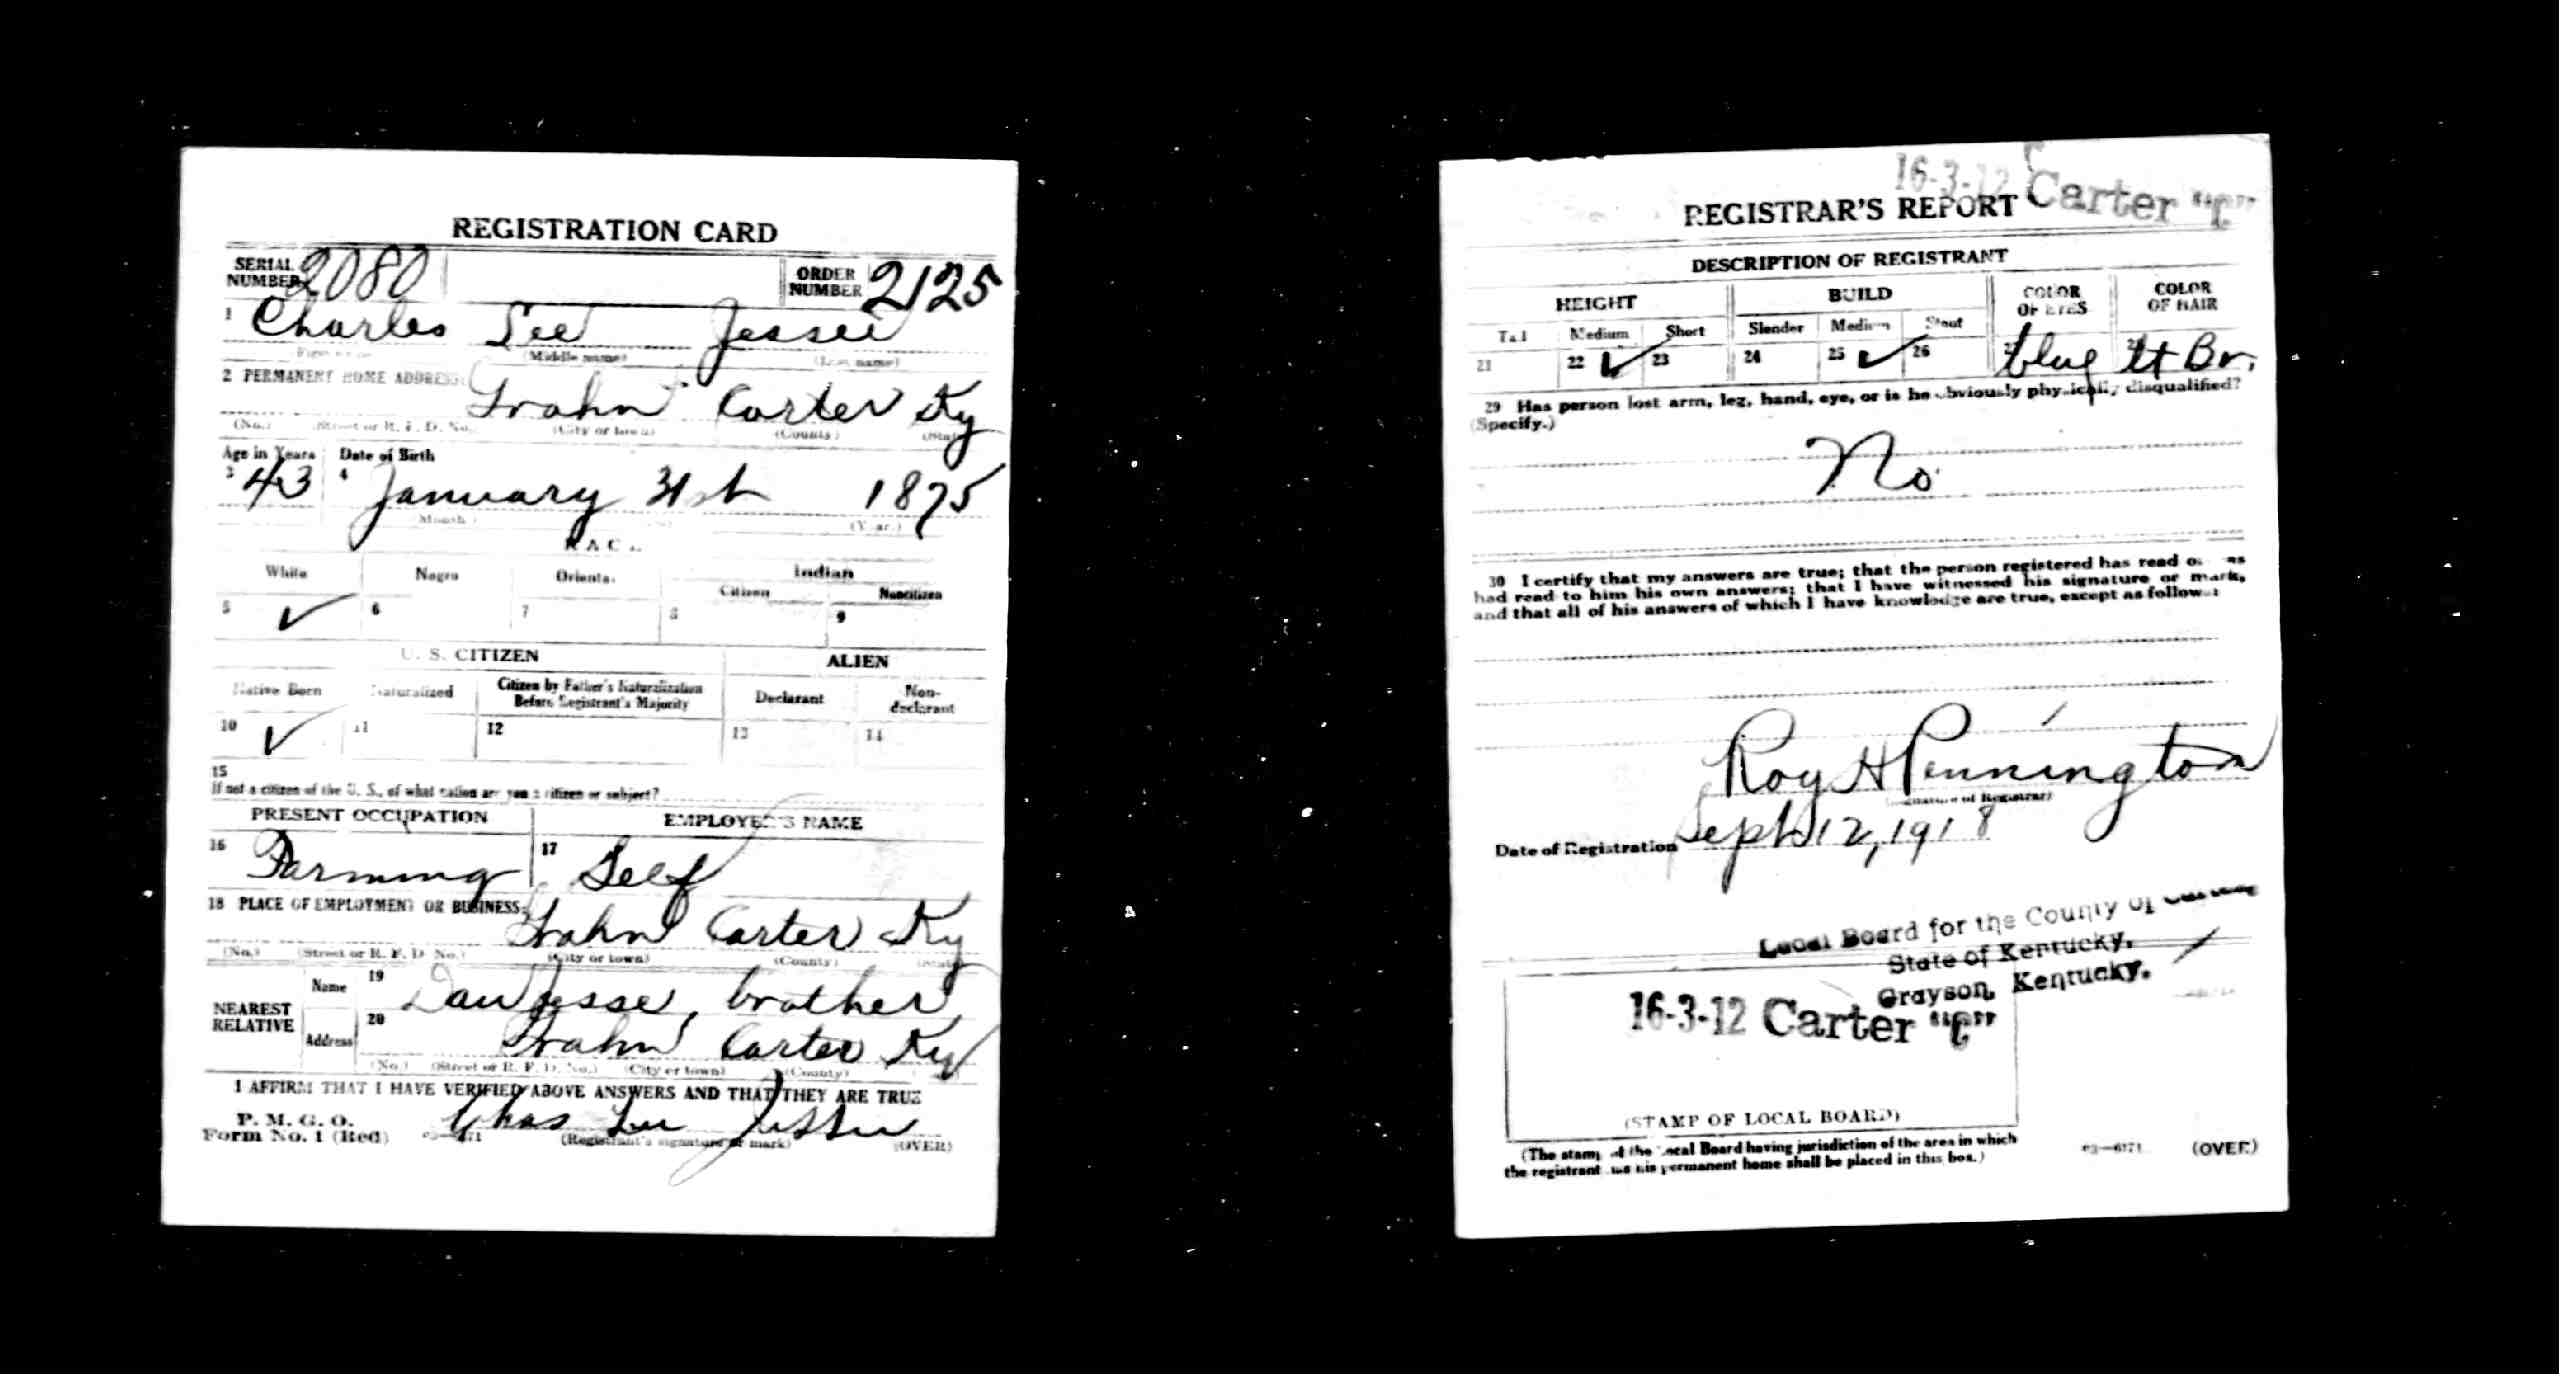 REGISTRATION CARD
SERIAL NUMBER 2080 ORDER NUMBER 2125
1 Charles Lee Jessee
(Middle name) (Last name)
2 PERMANENT HOME ADDRESS:
Grahn Carter Ky
(No.) (Street or R. F. D. No.) (City or town) (County) (State)
Age in Years Date of Birth
3 43 4 January 31st 1875
(Month.) (Year.)
RACE
White Negro Oriental Indian
Citizen Noncitizen
5 ✓ 6 7 8 9
U. S. CITIZEN ALIEN
Native Born Naturalized Citizen by Father's Naturalization Before Registrant's Majority Declarant Non-declarant
10 ✓ 11 12 13 14
15
If not a citizen of the U. S., of what nation are you a citizen or subject?
PRESENT OCCUPATION EMPLOYER'S NAME
16 Farming 17 Self
18 PLACE OF EMPLOYMENT OR BUSINESS:
Grahn Carter Ky
(No.) (Street or R. F. D. No.) (City or town) (County) (State)
NEAREST RELATIVE Name 19 Dan Jesse, brother
Address 20 Grahn Carter Ky
(No.) (Street or R. F. D. No.) (City or town) (County)
I AFFIRM THAT I HAVE VERIFIED ABOVE ANSWERS AND THAT THEY ARE TRUE
P. M. G. O.
Form No. 1 (Red) Chas Lee Jessee
(Registrant's signature or mark) (OVER)
16-3-12 Carter "C"
REGISTRAR'S REPORT
DESCRIPTION OF REGISTRANT
HEIGHT BUILD COLOR OF EYES COLOR OF HAIR
Tall Medium Short Slender Medium Stout
21 22 ✓ 23 24 25 ✓ 26 27 blue 28 Lt Br.
29 Has person lost arm, leg, hand, eye, or is he obviously physically disqualified?
(Specify.)
No
30 I certify that my answers are true; that the person registered has read or has
had read to him his own answers; that I have witnessed his signature or mark,
and that all of his answers of which I have knowledge are true, except as follows:
Roy H Pennington
(Signature of Registrar)
Date of Registration Sept 12, 1918
Local Board for the County of Carter
State of Kentucky,
Grayson, Kentucky.
16-3-12 Carter "C"
(STAMP OF LOCAL BOARD)
(The stamp of the Local Board having jurisdiction of the area in which
the registrant has his permanent home shall be placed in this box.)
03—6171 (OVER)